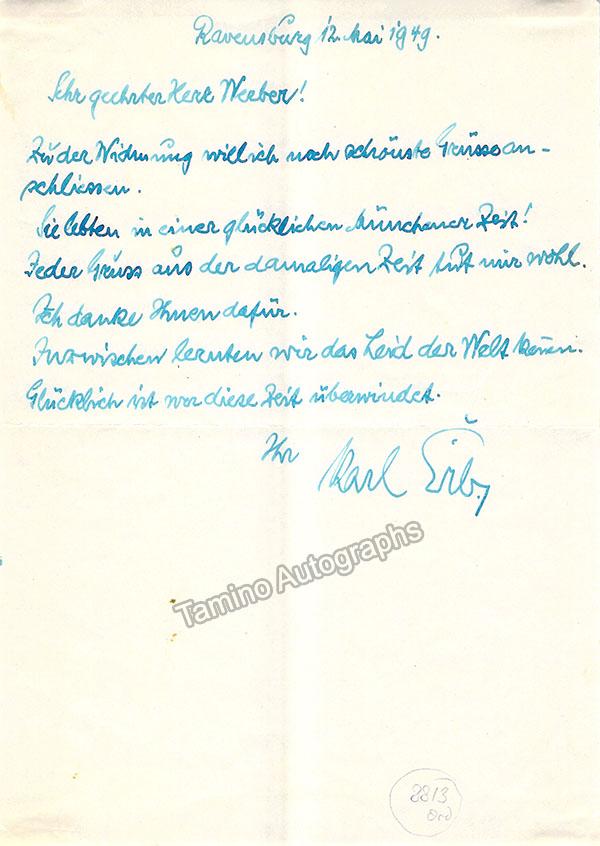 Ravensburg 12. Mai 1949.
Sehr geehrter Herr Weeber!
Zu der Widmung will ich noch schönste Grüsse an-
schliessen.
Sie lebten in einer glücklichen Münchener Zeit!
Jeder Gruss aus der damaligen Zeit tut mir wohl.
Ich danke Ihnen dafür.
Inzwischen lernten wir das Leid der Welt kennen.
Glücklich ist wer diese Zeit überwindet.
Ihr Karl Erb
Tamino Autographs
8813